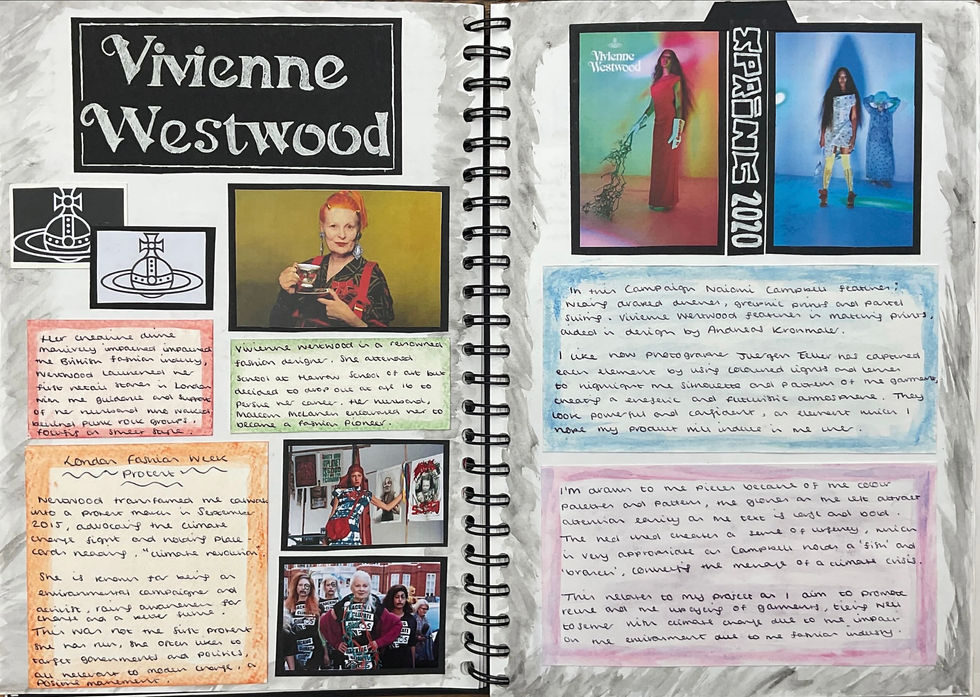 Vivienne
Westwood
Her creative drive
massively impacted impacted
the British fashion industry,
Westwood launched her
first retail stores in London
with the guidance and support
of her husband who worked
behind punk rock groups,
in street style.
Vivienne Westwood is a renowned
fashion designer. She attended
school at Harrow School of Art but
decided to drop out at age 16 to
persue her career. Her husband,
Malcolm McLaren encouraged her to
become a fashion pioneer.
London Fashion Week
Protest
Westwood transformed the catwalk
into a protest march in September
2015, advocating the climate
change fight and holding place
cards reading, "climate revolution".
She is known for being an
environmental campaigner and
activist, raising awareness for
change and a better future.
This was not the first protest
she has run, she often likes to
target governments and politics,
all relevant to modern change, a
positive movement.
Vivienne
Westwood
SPRING 2020
In this Campaign Naiomi Campbell features;
wearing draped dresses, graphic prints and pastel
suing. Vivienne Westwood features in matching prints,
aided in design by Andreas Kronthaler.
I like how photographer Juergen Teller has captured
each element by using coloured lights and lenses
to highlight the silhouette and pattern of the garments,
creating a energetic and futuristic atmosphere. They
look powerful and confident, an element which I
hope my product will induce in the user.
I'm drawn to the pieces because of the colour
palettes and pattern, the gloves on the left attract
attention easily as the text is large and bold.
The red used creates a sense of urgency, which
is very appropriate as Campbell holds a 'fish' and
'branch', connecting the menace of a climate crisis.
This relates to my project as I aim to promote
reuse and the upcycling of garments, tieing well
together with climate change due to the impact
on the environment due to the fashion industry.